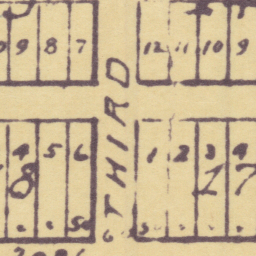 9 8 7 12 11 10 9
THIRD
4 5 6 1 2 3 4
8 17
50